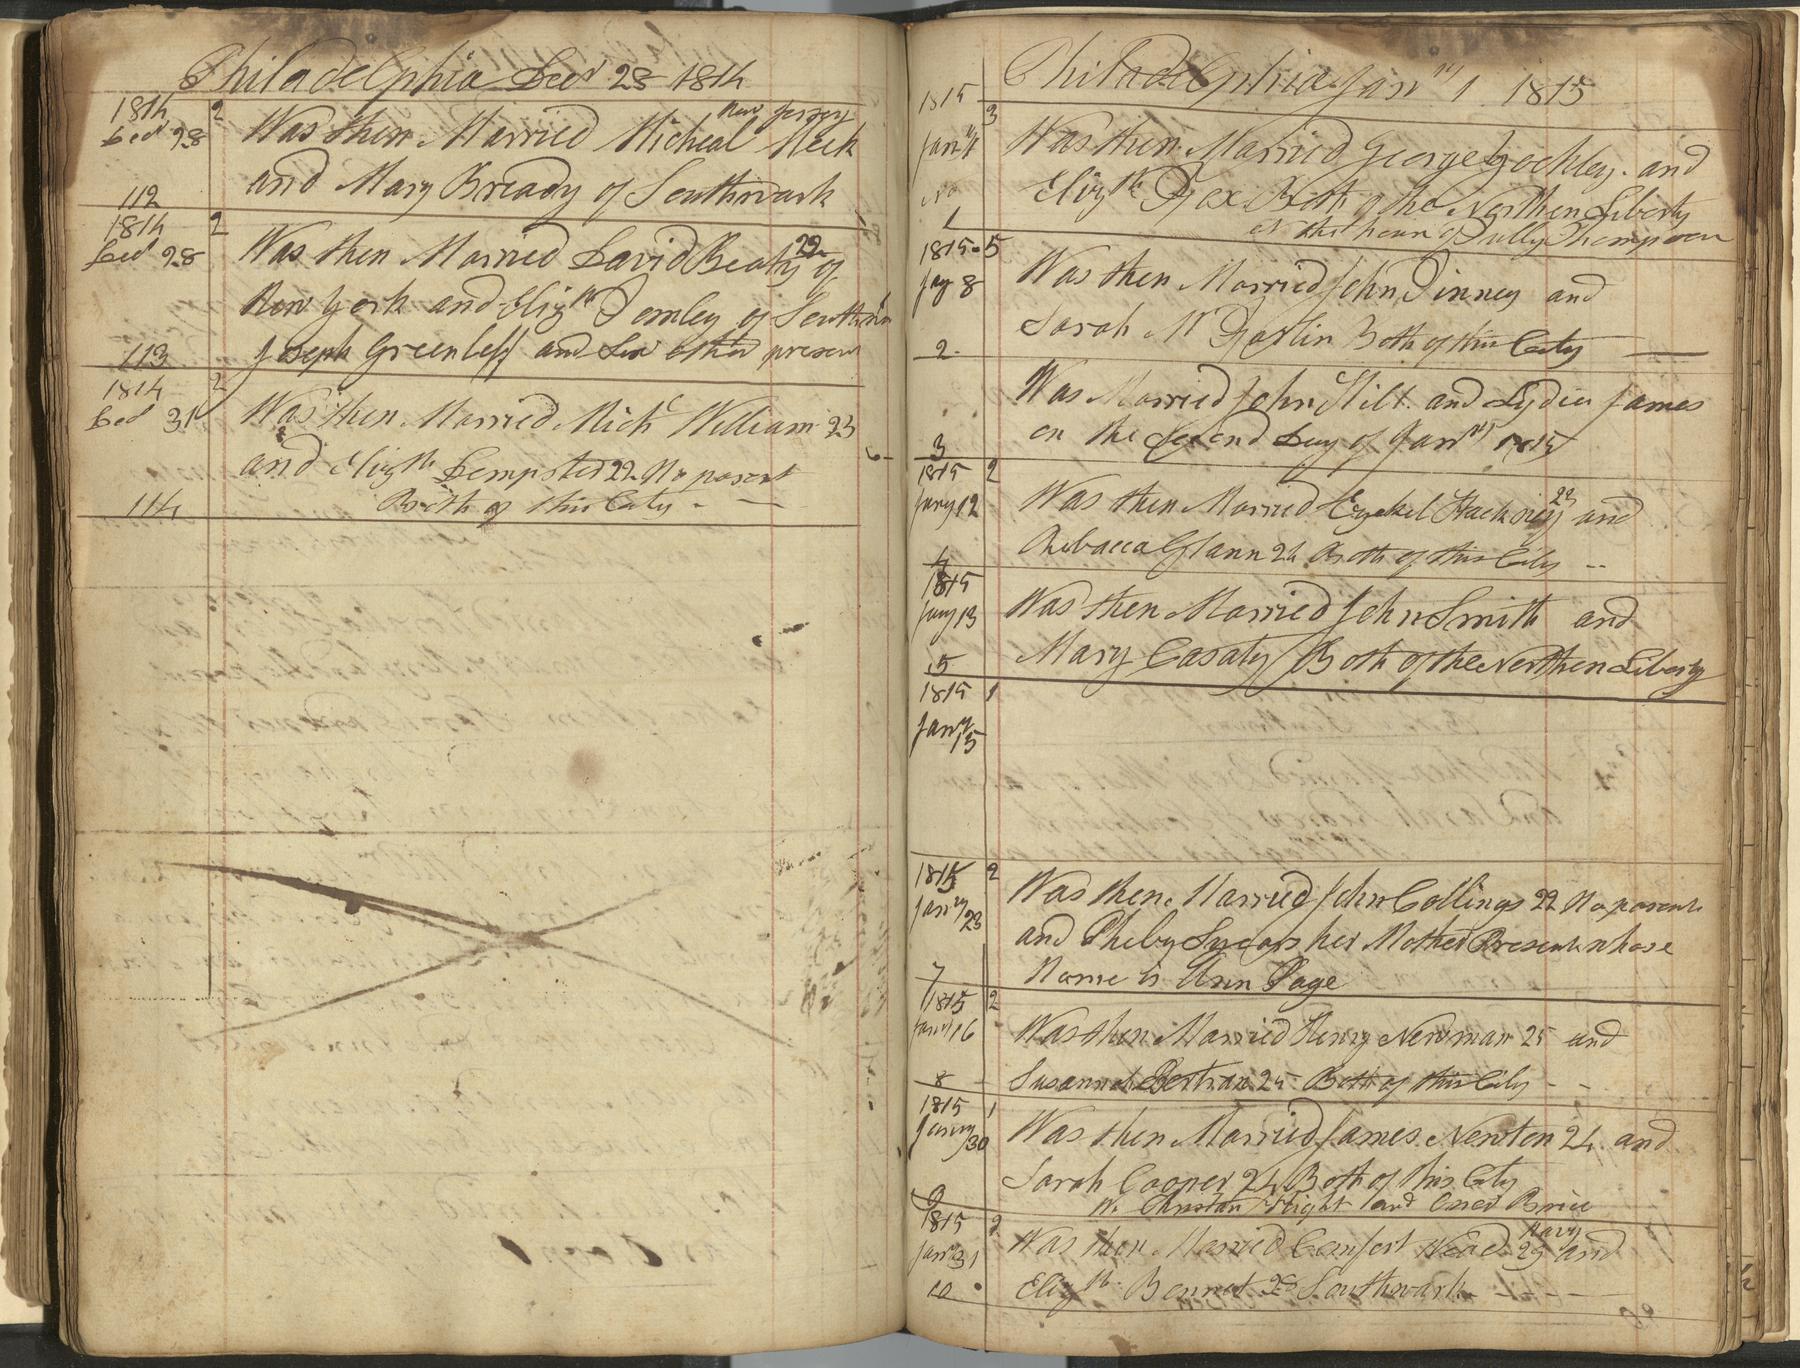 Philadelphia Decr 28 1814
1814 2
Decr 28 Was then Married Micheal Meek
new jersey
and Mary Bready of Southwark
112
1814 2
Decr 28 Was then Married David Beaty 22 of
New York and Elizth Tomley of Southwa
113 Joseph Greenleff and Six other present
1814 2
Decr 31 Was then Married Michl William 23
and Elizth Dempster 22 No parent
114 Both of this City -
Philadelphia Jany 1 1815
1815 3
Jany 1 Was then Married George Gockley and
No 1 Elizth Fox Both of the Northen Liberty
at the house of Thompson
1815 5
Jay 8 Was then Married John Pinney and
2 Sarah Mc Farlin Both of this City
Was Married John Hilt and Lydia James
3 on the Second Day of Jany 1815
1815 2
Jany 12 Was then Married Ezekel Hackney 23 and
4 Rebacca Glann 24 Both of this City --
1815
Jany 13 Was then Married John Smith and
5 Mary Casaty Both of the Northen Liberty
1815 1
Jany 15
1815 2
Jany 23 Was then Married John Collings 22 No parents
and Pheby her Mother Present whose
7 Name is Ann Page
1815 2
Jany 16 Was then Married Henry Newman 25 and
8 Susannah Bertran 25 Both of this City - -
1815 1
Janry 30 Was then Married James Newton 24 and
Sarah Cooper 24 Both of this City
9 Wi Christan Hight and Brice
1815 2
Jany 31 Was then Married Comfort Wead 29 and
Navy
10 Elizth Bennet 28 Southwark - - - -